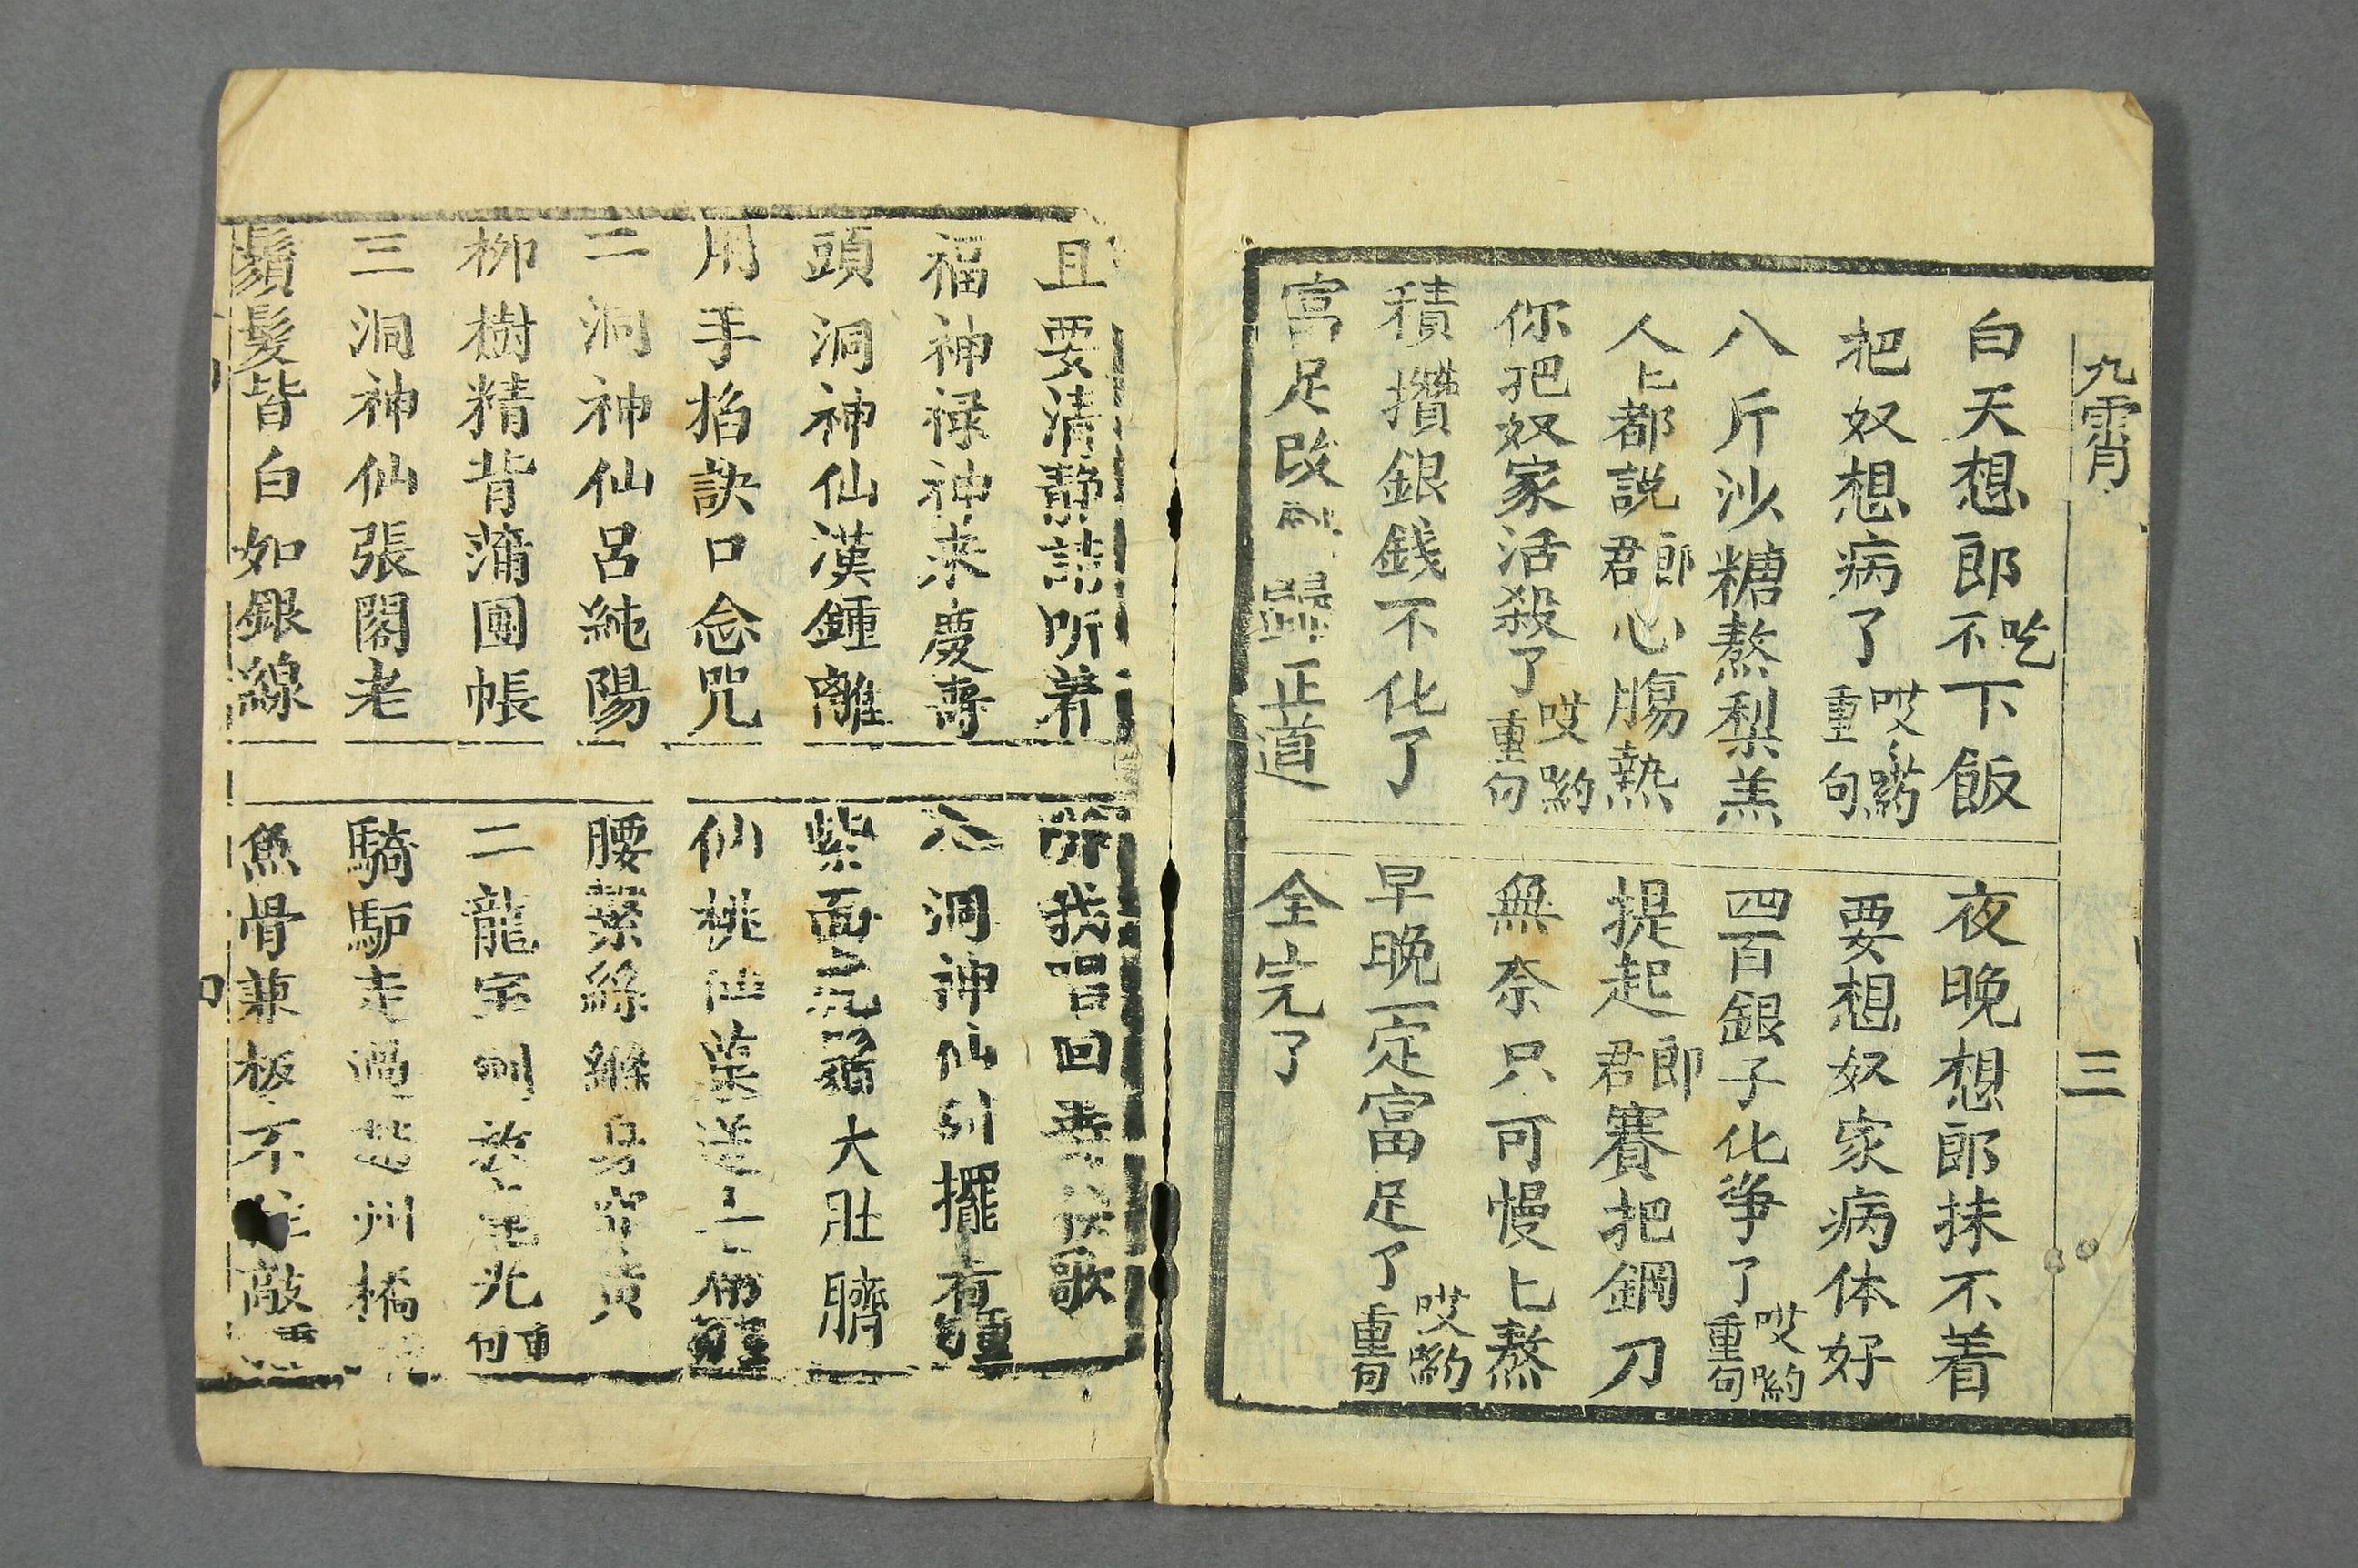 九霄
三
白天想郎不吃下飯
把奴想病了哎喲重句
八斤沙糖熬梨羔
人〻都説郎君心腸熱
你把奴家活殺了哎喲重句
積攢銀錢不化了
富足改 歸正道
夜晚想郎抹不着
要想奴家病体好
四百銀子化爭了哎喲重句
提起郎君賽把鋼刀
無奈只可慢〻熬
早晚一定富足了哎喲重句
全完了
且要清静請听着
福神禄神来慶壽
頭洞神仙漢鍾離
用手掐訣口念咒
二洞神仙呂純陽
柳樹精背蒲團帳
三洞神仙張閣老
鬚髮皆白如銀線
我唱回 歌
八洞神仙列擺有
紫面 大肚臍
仙桃仙菓送上
腰繫絲縧身穿黄
二龍宝劍放毫光重句
騎馿走過趙州橋
魚骨兼板不 敲